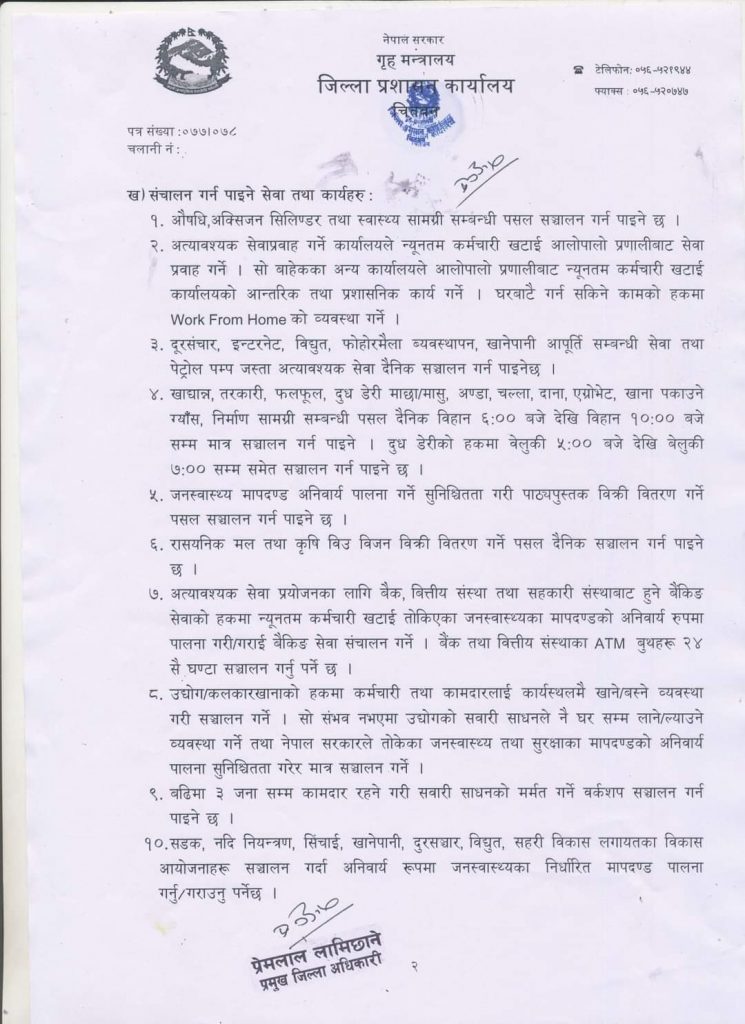 नेपाल सरकार
गृह मन्त्रालय
जिल्ला प्रशासन कार्यालय
चितवन
☎ टेलिफोन: ०५६-५२१९४४
फ्याक्स : ०५६-५२०७४७
पत्र संख्या :०७७।०७८
चलानी नं :
ख) संचालन गर्न पाइने सेवा तथा कार्यहरु :
१. औषधि,अक्सिजन सिलिण्डर तथा स्वास्थ्य सामग्री सम्बन्धी पसल सञ्चालन गर्न पाइने छ ।
२. अत्यावश्यक सेवाप्रवाह गर्ने कार्यालयले न्यूनतम कर्मचारी खटाई आलोपालो प्रणालीबाट सेवा
प्रवाह गर्ने । सो बाहेकका अन्य कार्यालयले आलोपालो प्रणालीबाट न्यूनतम कर्मचारी खटाई
कार्यालयको आन्तरिक तथा प्रशासनिक कार्य गर्ने । घरबाटै गर्न सकिने कामको हकमा
Work From Home को व्यवस्था गर्ने ।
३. दूरसंचार, इन्टरनेट, विद्युत, फोहोरमैला व्यवस्थापन, खानेपानी आपूर्ति सम्बन्धी सेवा तथा
पेट्रोल पम्प जस्ता अत्यावश्यक सेवा दैनिक सञ्चालन गर्न पाइनेछ ।
४. खाद्यान्न, तरकारी, फलफूल, दुध डेरी माछा/मासु, अण्डा, चल्ला, दाना, एग्रोभेट, खाना पकाउने
ग्याँस, निर्माण सामग्री सम्बन्धी पसल दैनिक विहान ६:०० बजे देखि विहान १०:०० बजे
सम्म मात्र सञ्चालन गर्न पाइने । दुध डेरीको हकमा वेलुकी ५:०० बजे देखि बेलुकी
७:०० सम्म समेत सञ्चालन गर्न पाइने छ ।
५. जनस्वास्थ्य मापदण्ड अनिवार्य पालना गर्ने सुनिश्चितता गरी पाठ्यपुस्तक विक्री वितरण गर्ने
पसल सञ्चालन गर्न पाइने छ ।
६. रासयनिक मल तथा कृषि विउ विजन विक्री वितरण गर्ने पसल दैनिक सञ्चालन गर्न पाइने
छ ।
७. अत्यावश्यक सेवा प्रयोजनका लागि बैक, बित्तीय संस्था तथा सहकारी संस्थाबाट हुने बैंकिङ
सेवाको हकमा न्यूनतम कर्मचारी खटाई तोकिएका जनस्वास्थ्यका मापदण्डको अनिवार्य रुपमा
पालना गरी/गराई बैकिङ सेवा संचालन गर्ने । बैंक तथा वित्तीय संस्थाका ATM बुथहरू २४
सै घण्टा सञ्चालन गर्नु पर्ने छ ।
८. उद्योग/कलकारखानाको हकमा कर्मचारी तथा कामदारलाई कार्यस्थलमै खाने/बस्ने व्यवस्था
गरी सञ्चालन गर्ने । सो संभव नभएमा उद्योगको सवारी साधनले नै घर सम्म लाने/ल्याउने
व्यवस्था गर्ने तथा नेपाल सरकारले तोकेका जनस्वास्थ्य तथा सुरक्षाका मापदण्डको अनिवार्य
पालना सुनिश्चितता गरेर मात्र सञ्चालन गर्ने ।
९. बढिमा ३ जना सम्म कामदार रहने गरी सवारी साधनको मर्मत गर्ने वर्कशप सञ्चालन गर्न
पाइने छ ।
१०. सडक, नदि नियन्त्रण, सिंचाई, खानेपानी, दुरसञ्चार, विद्युत, सहरी विकास लगायतका विकास
आयोजनाहरू सञ्चालन गर्दा अनिवार्य रूपमा जनस्वास्थ्यका निर्धारित मापदण्ड पालना
गर्नु/गराउनु पर्नेछ ।
प्रेमलाल लामिछाने
प्रमुख जिल्ला अधिकारी
२